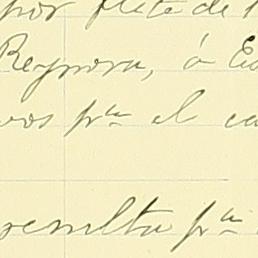 por flete de
Reynosa, ó
vos pra el
resulta pra